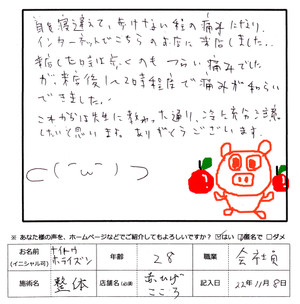 首を寝違えて、歩けない程の痛みになり、
インターネットでこちらのお店に来店しました。
来店した時は歩くのもつらい痛みでした
が、来店後1〜2時間程度で痛みが和らい
できました。
これからは先生に教わった通り、冷えに充分に注意
したいと思います。ありがとうございます。
⊂(´ω`)⊃
※ あなた様の声を、ホームページなどでご紹介してもよろしいですか？ はい □匿名で □ダメ
お名前 (イニシャル可) ホライズン 年齢 28 職業 会社員
施術名 整体 店舗名(必須) 赤ひげ こころ 22年11月8日